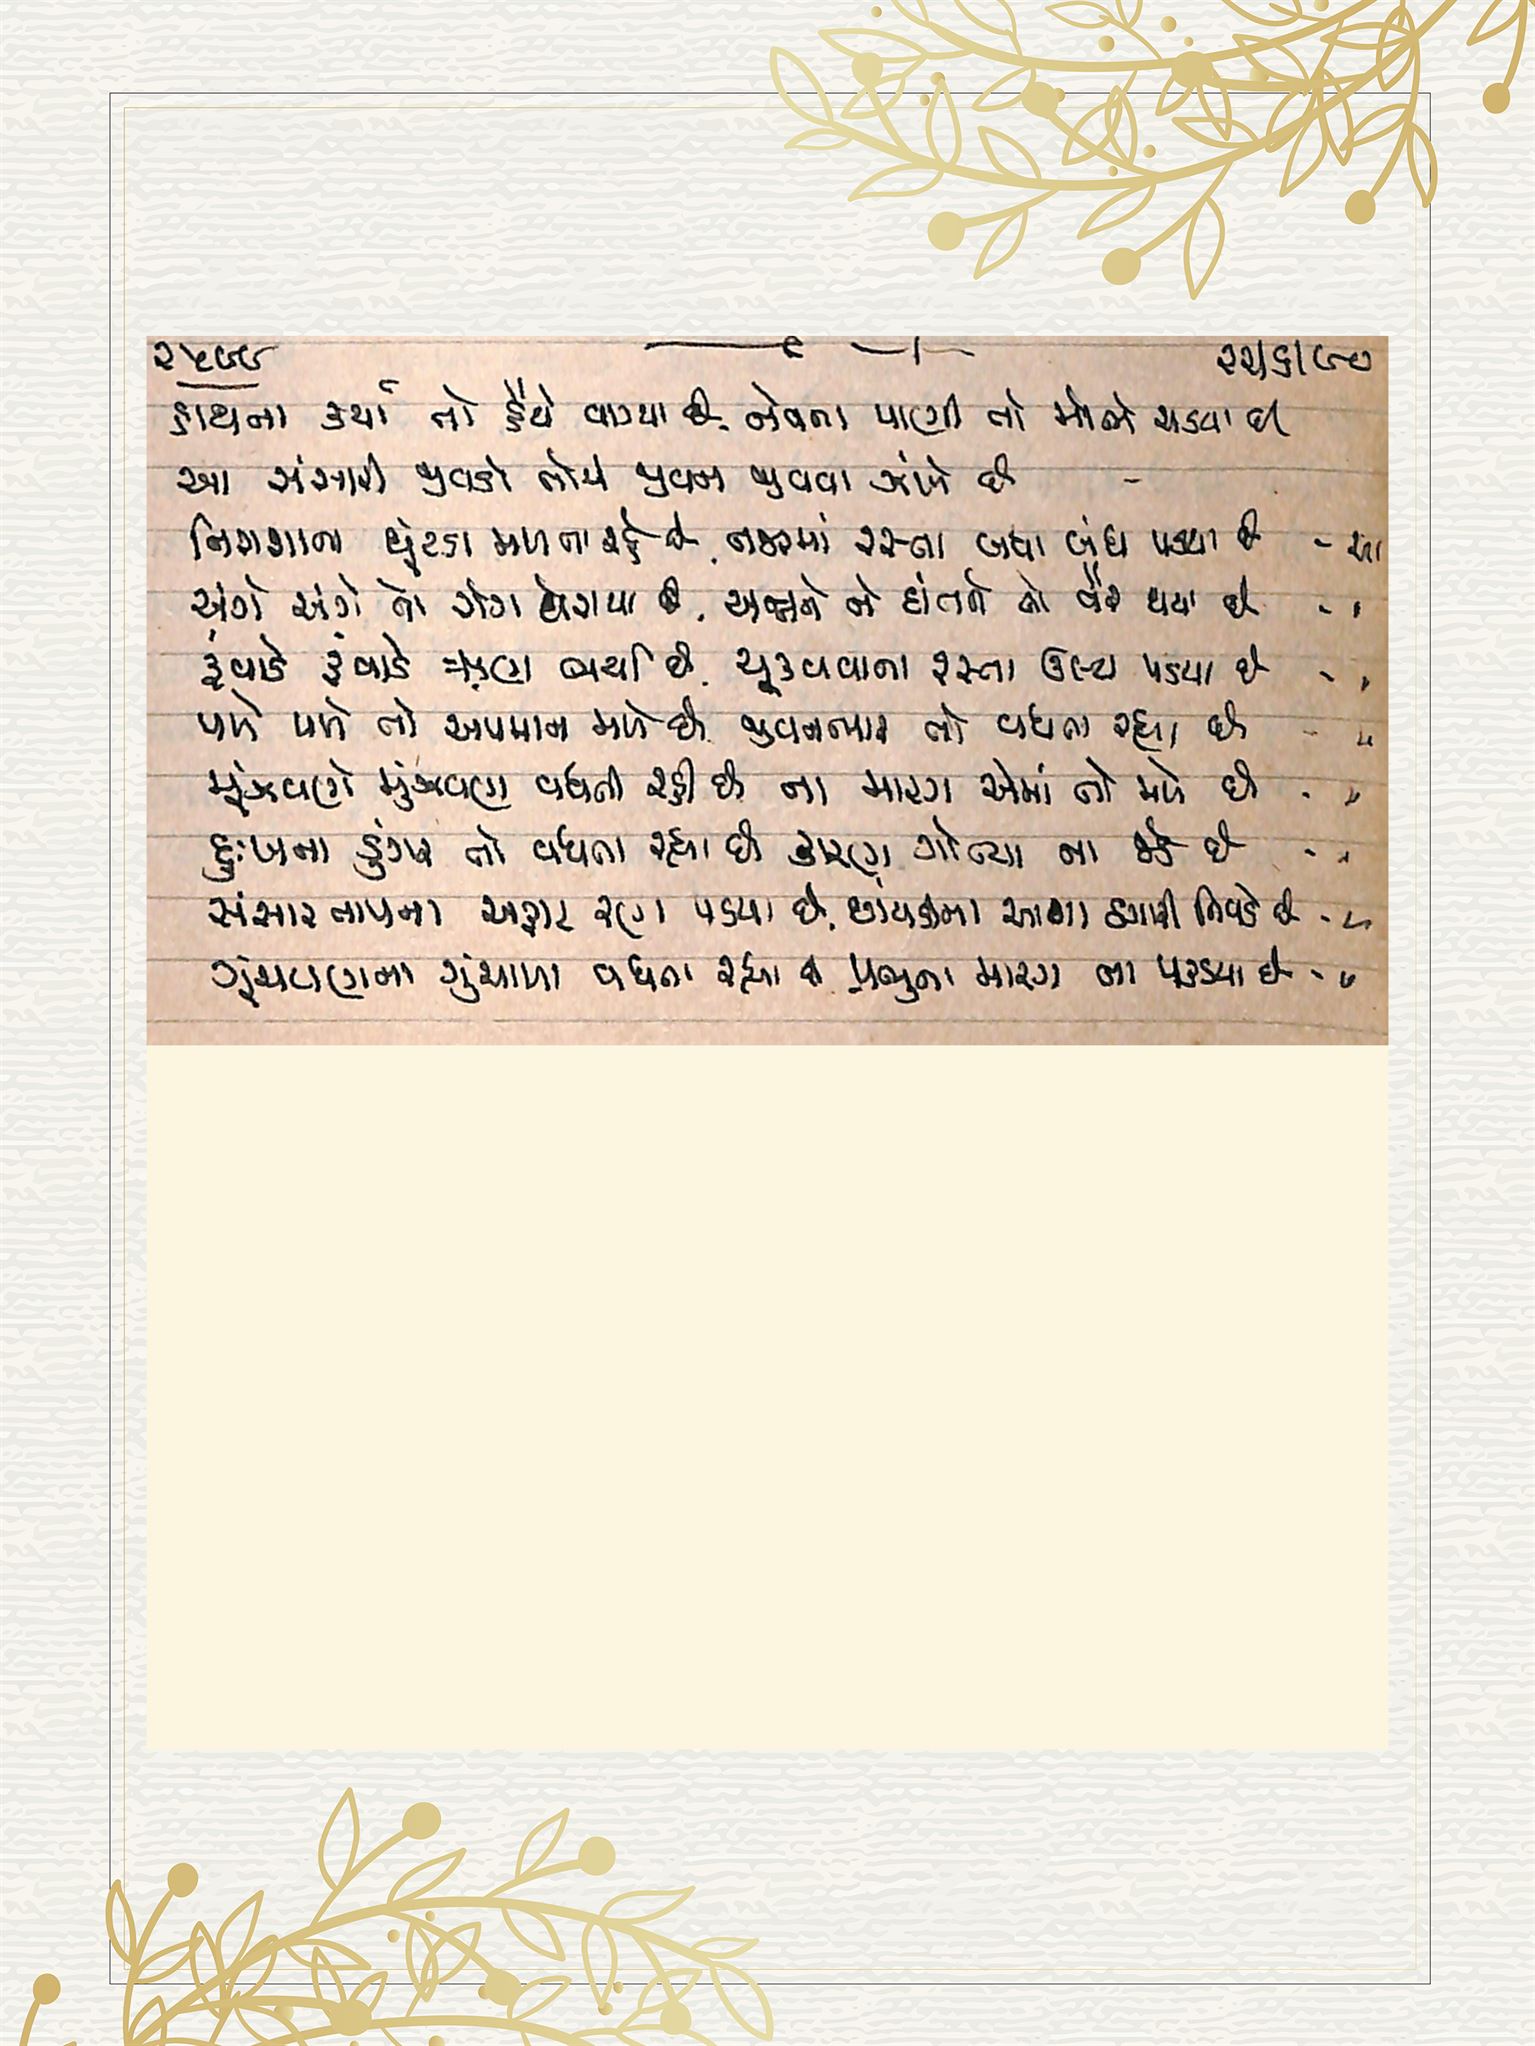 ૨૫૯૯ ૨૨/૬/૯૦
હાથના કર્યાં તો હૈયે વાગ્યા છે, નેવના પાણી તો મોભે ચડયા છે
આ સંસારી જીવડો તોયે જીવન જીવવા ઝંખે છે -
નિરાશાના ઘૂંટડા મળતા રહે છે, નજરમાં રસ્તા બધા બંધ પડયા છે - આ
અંગે અંગે તો રોગ ઘેરાયા છે, અન્નને ને દાંતને તો વૈર થયા છે - "
રૂંવાડે રૂંવાડે ઋણ ભર્યા છે, ચૂકવવાના રસ્તા પડયા છે - "
પળે પળે તો અપમાન મળે છે, જીવનભાર તો વધતા રહ્યા છે - "
મૂંઝવણે મૂંઝવણ વધતી રહી છે, ના મારગ એમાં તો મળે છે - "
દુઃખના ડુંગર તો વધતા રહ્યા છે, કારણ ગોત્યા ના જડે છે - "
સંસારતાપના અફાટ રણ પડયા છે, છાંયડાના આશા ઠગારી નિવડે છે - "
ગૂંચવણના ગુંચાળા વધતા રહ્યા છે, પ્રભુના મારગ ના પકડયા છે - "